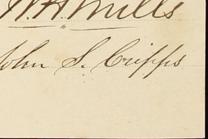 W.H. Mills
John S. Cripps